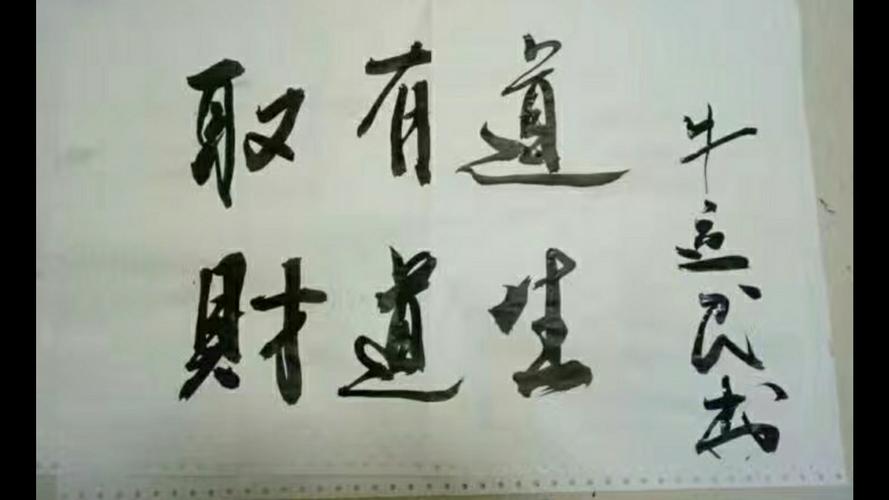 取有道
財道生
牛立民书